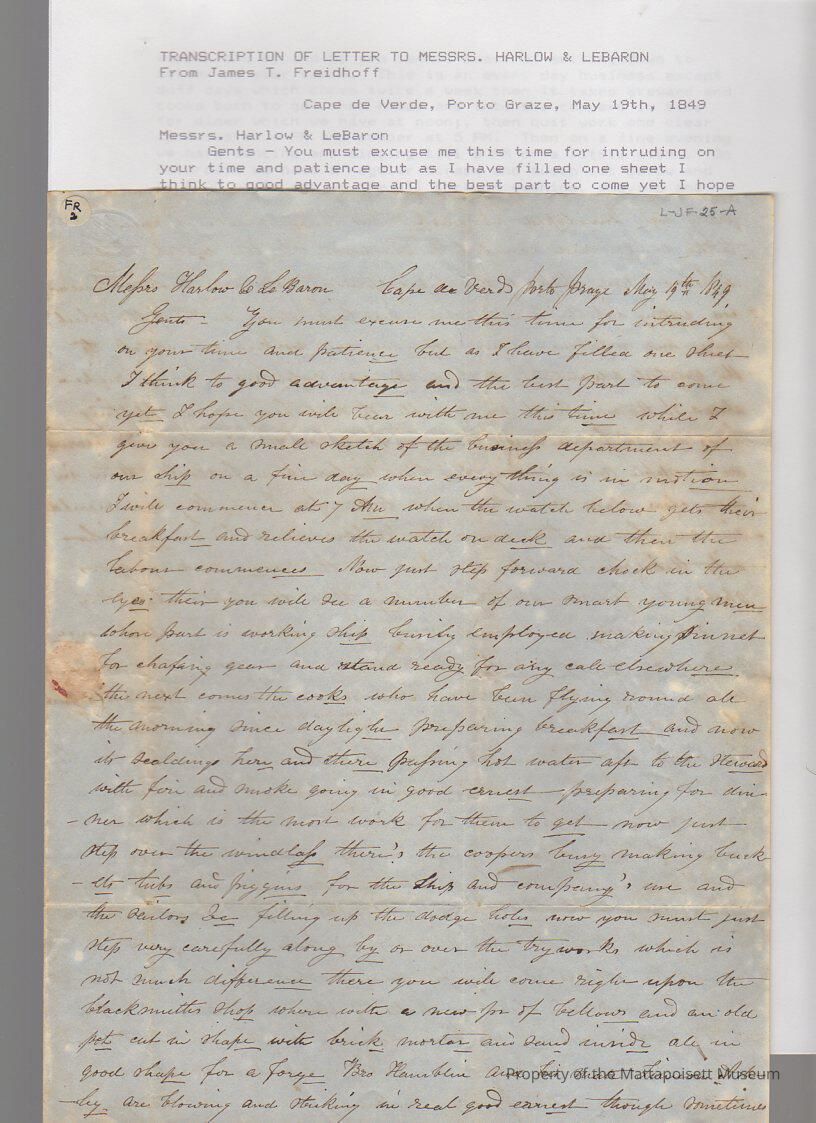 TRANSCRIPTION OF LETTER TO MESSRS. HARLOW & LEBARON
From James T. Freidhoff
Cape de Verde, Porto Graze, May 19th, 1849
Messrs. Harlow & LeBaron
Gents - You must excuse me this time for intruding on
your time and patience but as I have filled one sheet I
think to good advantage and the best part to come yet I hope
FR
2
L-JF-25-A
Messrs Harlow & Le Baron Cape de Verds Porto Praye May 19th 1849
Gents - You must excuse me this time for intruding
on your time and patience but as I have filled one sheet
I think to good advantage and the best part to come
yet I hope you will bear with me this time while I
give you a small sketch of the business department of
our ship on a fine day when every thing is in motion
I will commence at 7 AM when the watch below gets their
breakfast and relieves the watch on deck and then the
labour commences Now just step forward chock in the
eyes their you will see a number of our smart young men
whose part is working ship busily employed making sinnet
for chafing gear and stand ready for any call elsewhere
the next comes the cooks who have been flying round all
the morning since daylight preparing breakfast and now
its scaldings here and there passing hot water aft to the steward
with fire and smoke going in good ernest preparing for din-
-ner which is the most work for them to get now just
step over the windlass there's the coopers busy making buck
-ets tubs and piggins for the ship and company's use and
the sailors &c filling up the dodge holes now you must just
step very carefully along by or over the tryworks which is
not much difference there you will come right upon the
blacksmiths shop where with a new pr of bellows and an old
pot cut in shape with brick mortar and sand inside all in
good shape for a forge Bro Hamblin and
-ley are blowing and striking in real good earnest though sometimes
Property of the Mattapoisett Museum